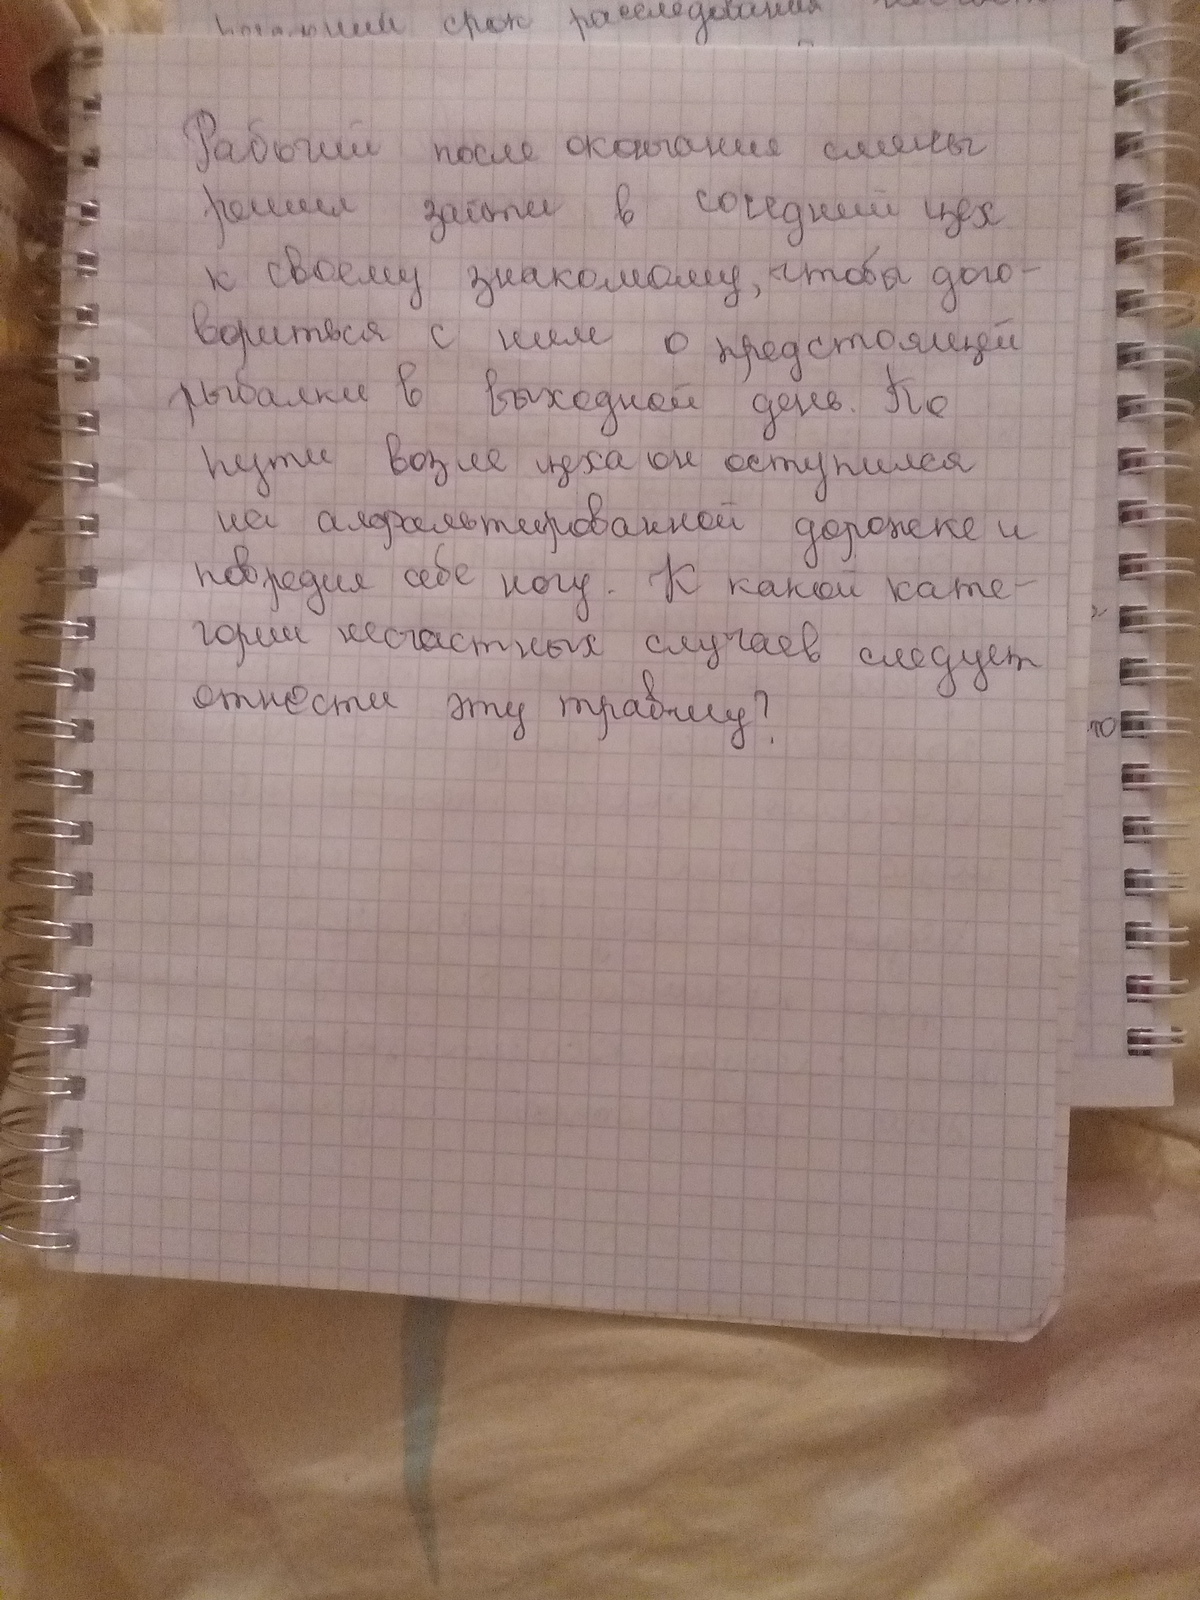 срок расследования
Рабочий после окончания смены
решил зайти в соседний цех
к своему знакомому, чтобы дого-
вориться с ним о предстоящей
рыбалки в выходной день. По
пути возле цеха он оступился
на асфальтированной дорожке и
повредил себе ногу. К какой кате-
гории несчастных случаев следует
отнести эту травму?
то